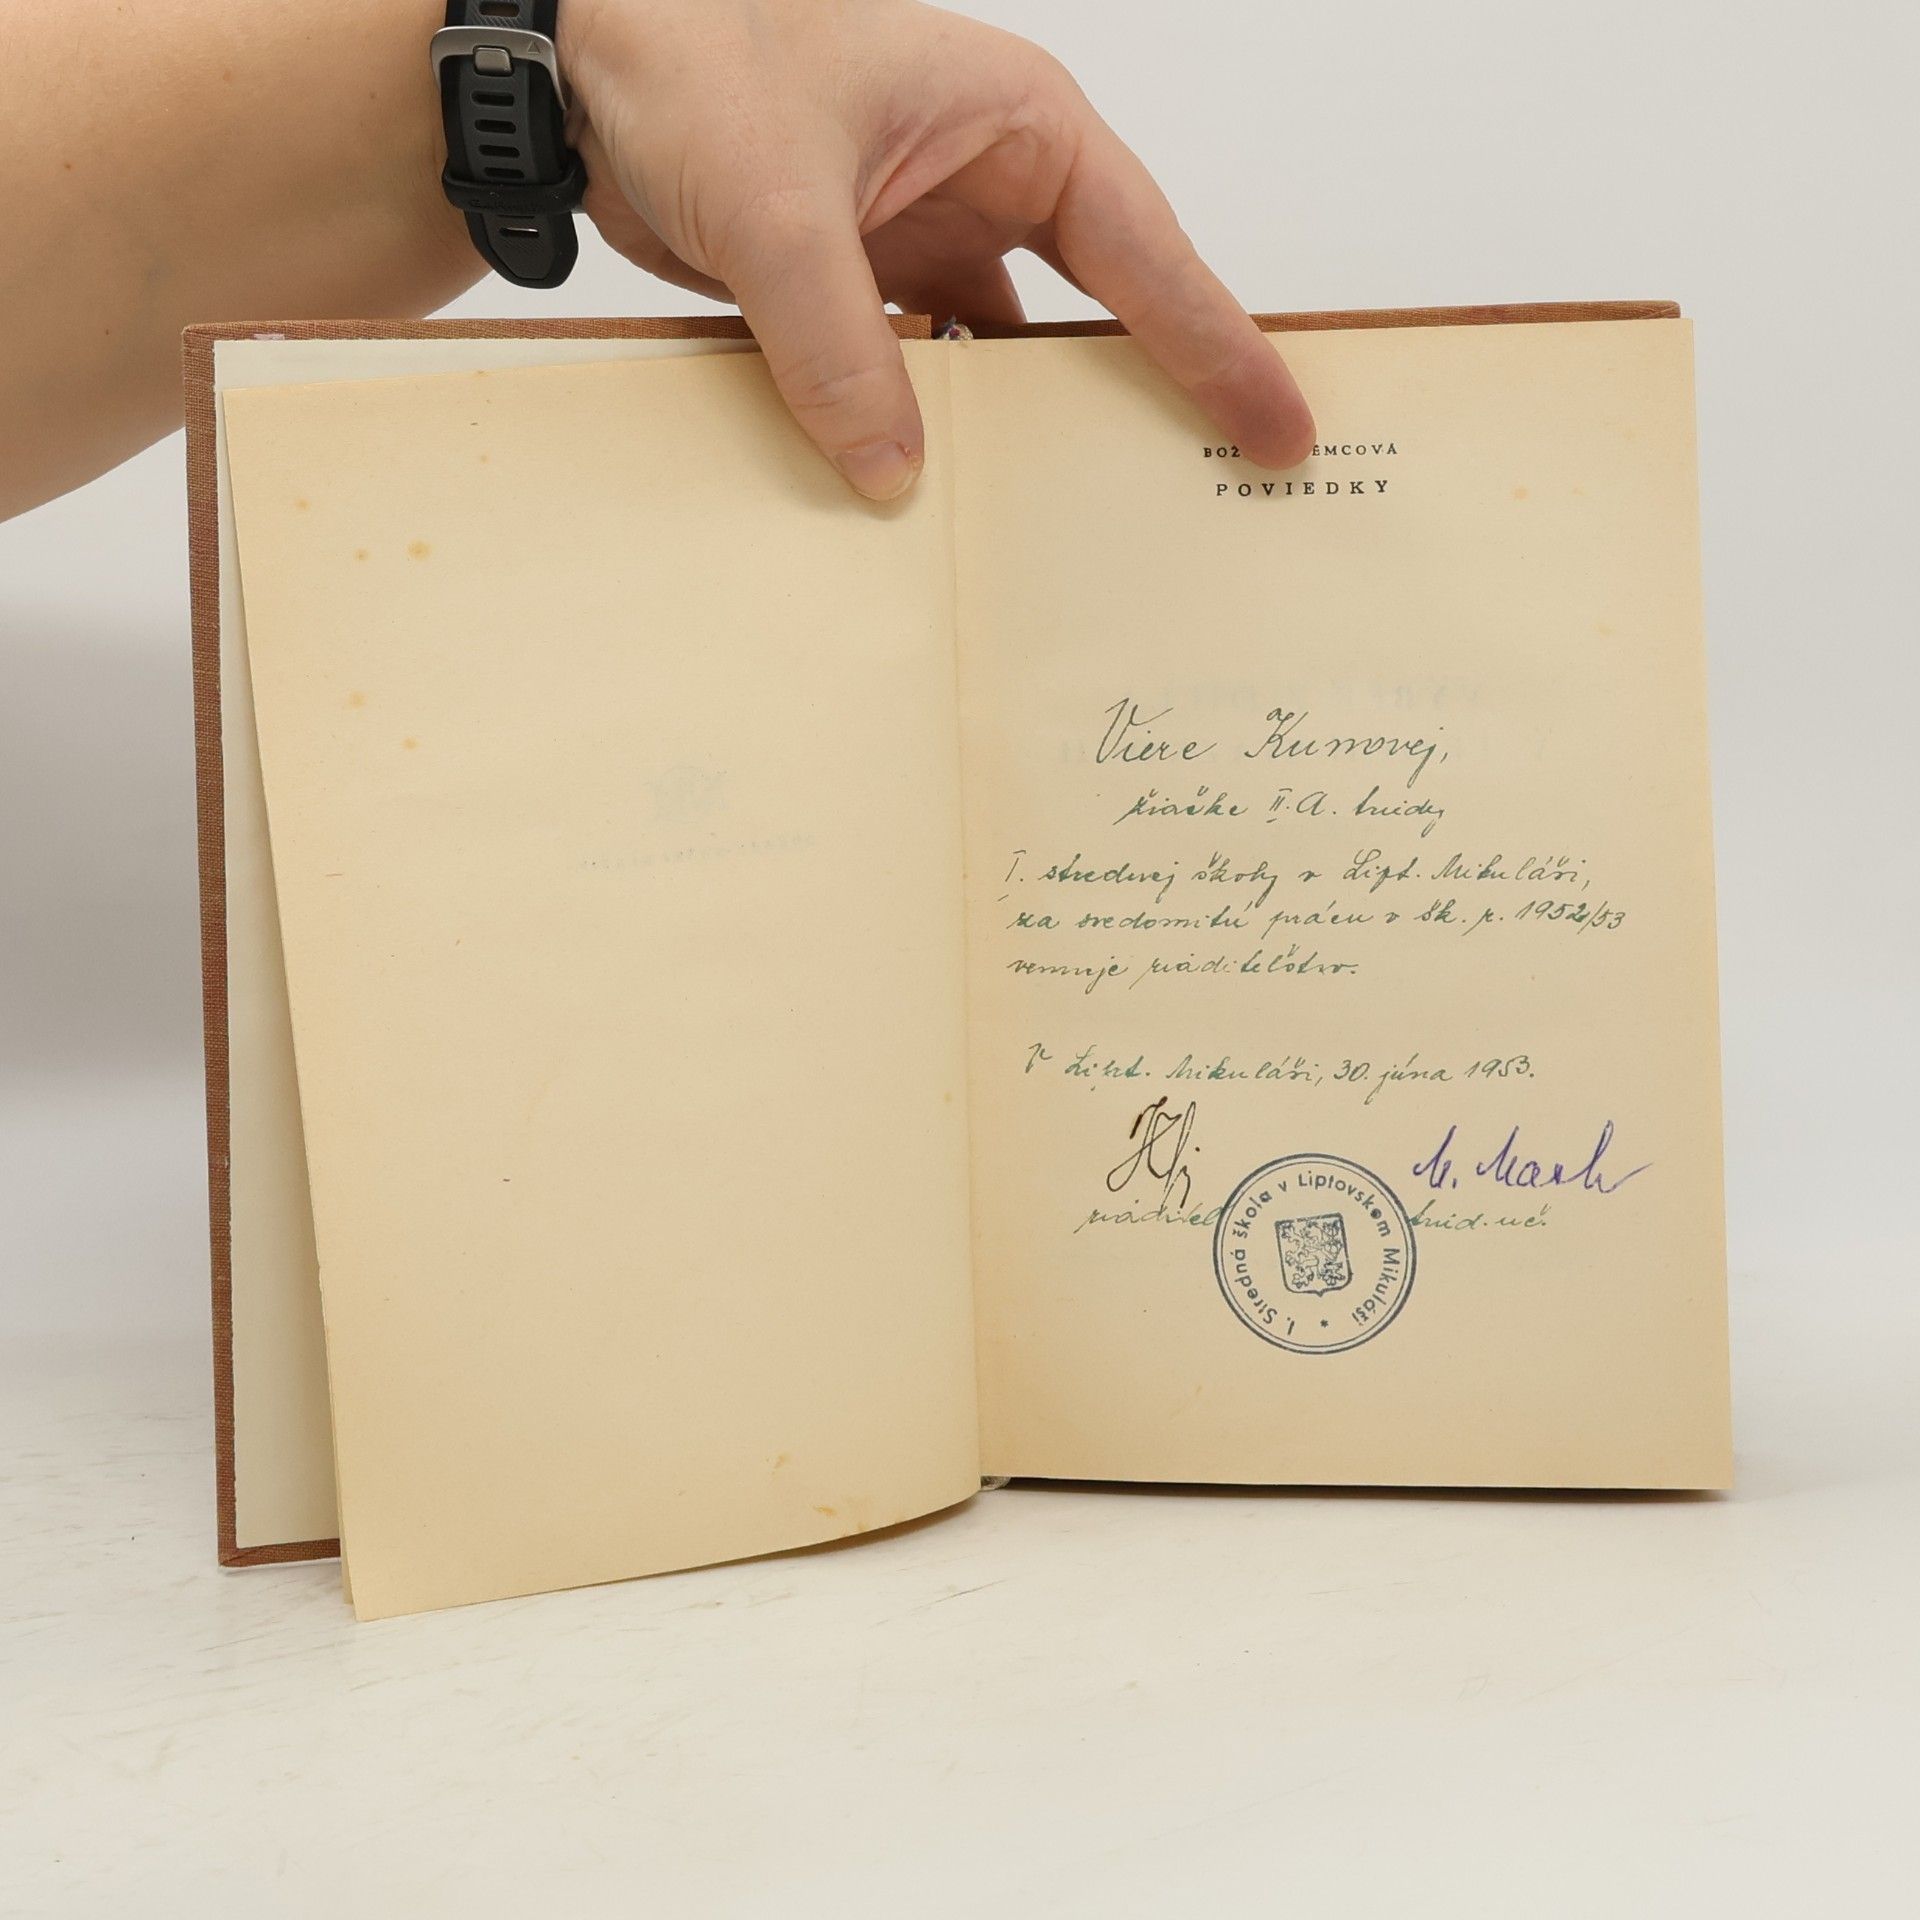 BOŽ ĚMCOVÁ
POVIEDKY
Viere Kunovej,
žiačke II. A. triedy
I. strednej školy v Lipt. Mikuláši,
za svedomitú prácu v šk. r. 1952/53
venuje riaditeľstvo.
V Lipt. Mikuláši, 30. júna 1953.
M.
riaditeľ
tried. uč.
I. Stredná škola v Liptovskom Mikuláši *